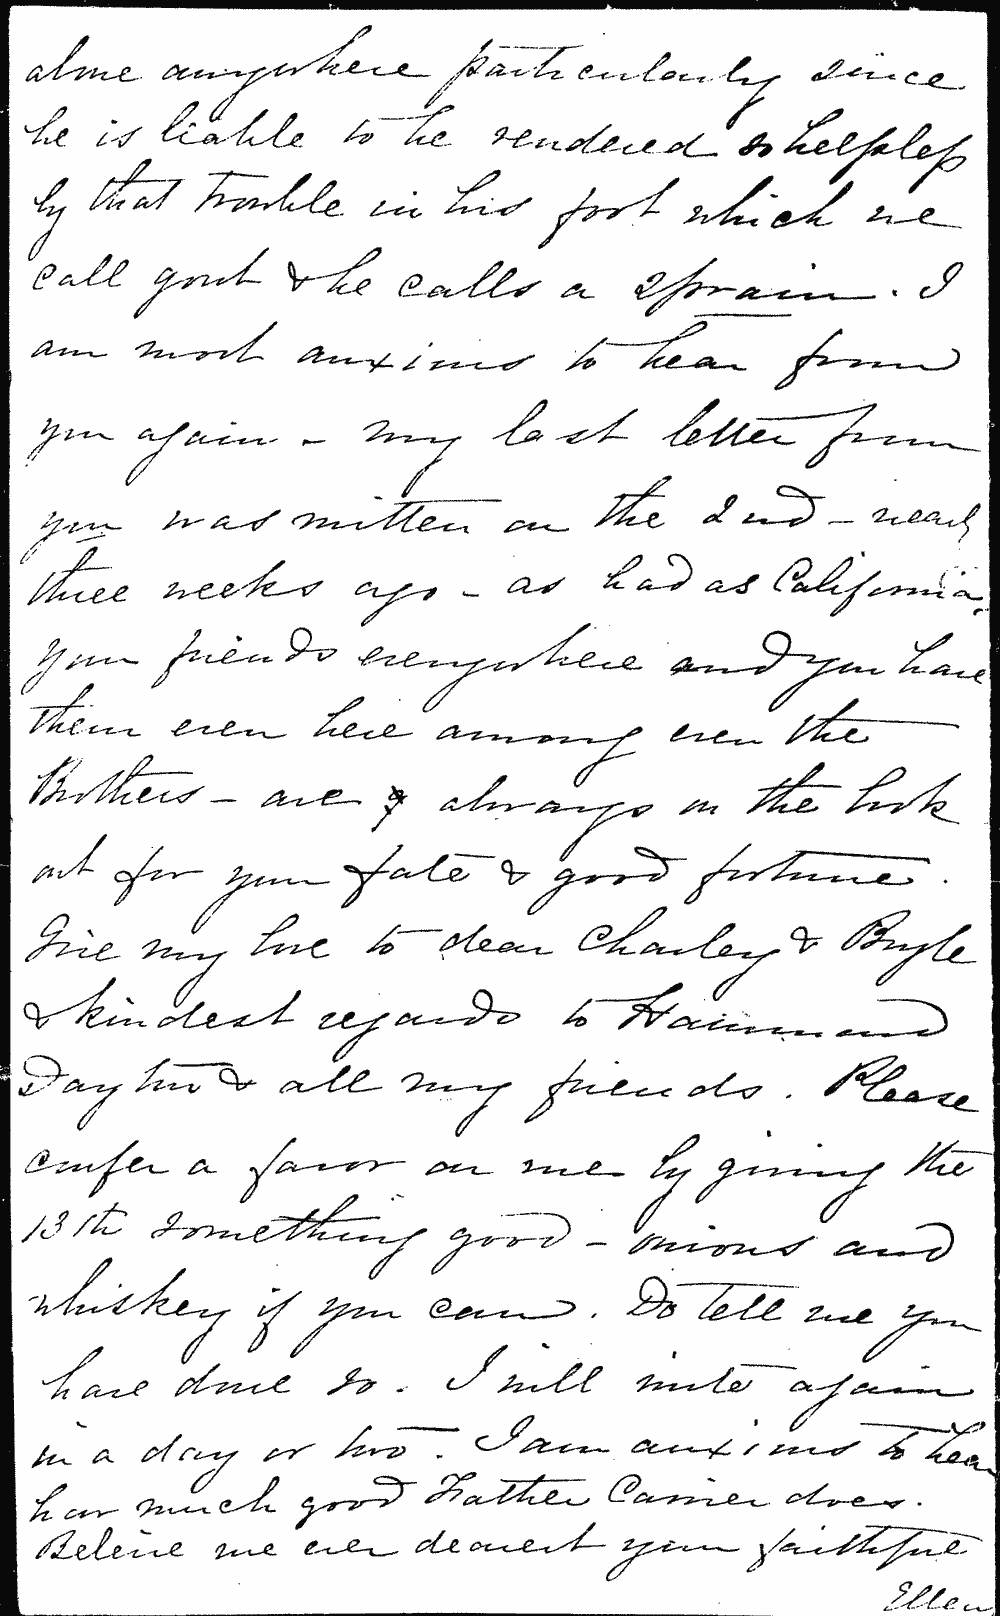 alone anywhere particularly since
he is liable to be rendered so helpless
by that trouble in his foot which we
call gout & he calls a sprain. I
am most anxious to hear from
you again - my last letter from
you was written on the 2nd - nearly
three weeks ago - as bad as California.
Your friends everywhere and you have
them even here among even the
Brothers - are always on the look
out for your fate & good fortune.
Give my love to dear Charley & Boyle
& kindest regards to Hammond
Dayton & all my friends. Please
confer a favor on me by giving the
13th something good - onions and
whiskey if you can. Do tell me you
have done so. I will write again
in a day or two. I am anxious to hear
how much good Father Carrier does.
Believe me ever dearest your faithful
Ellen